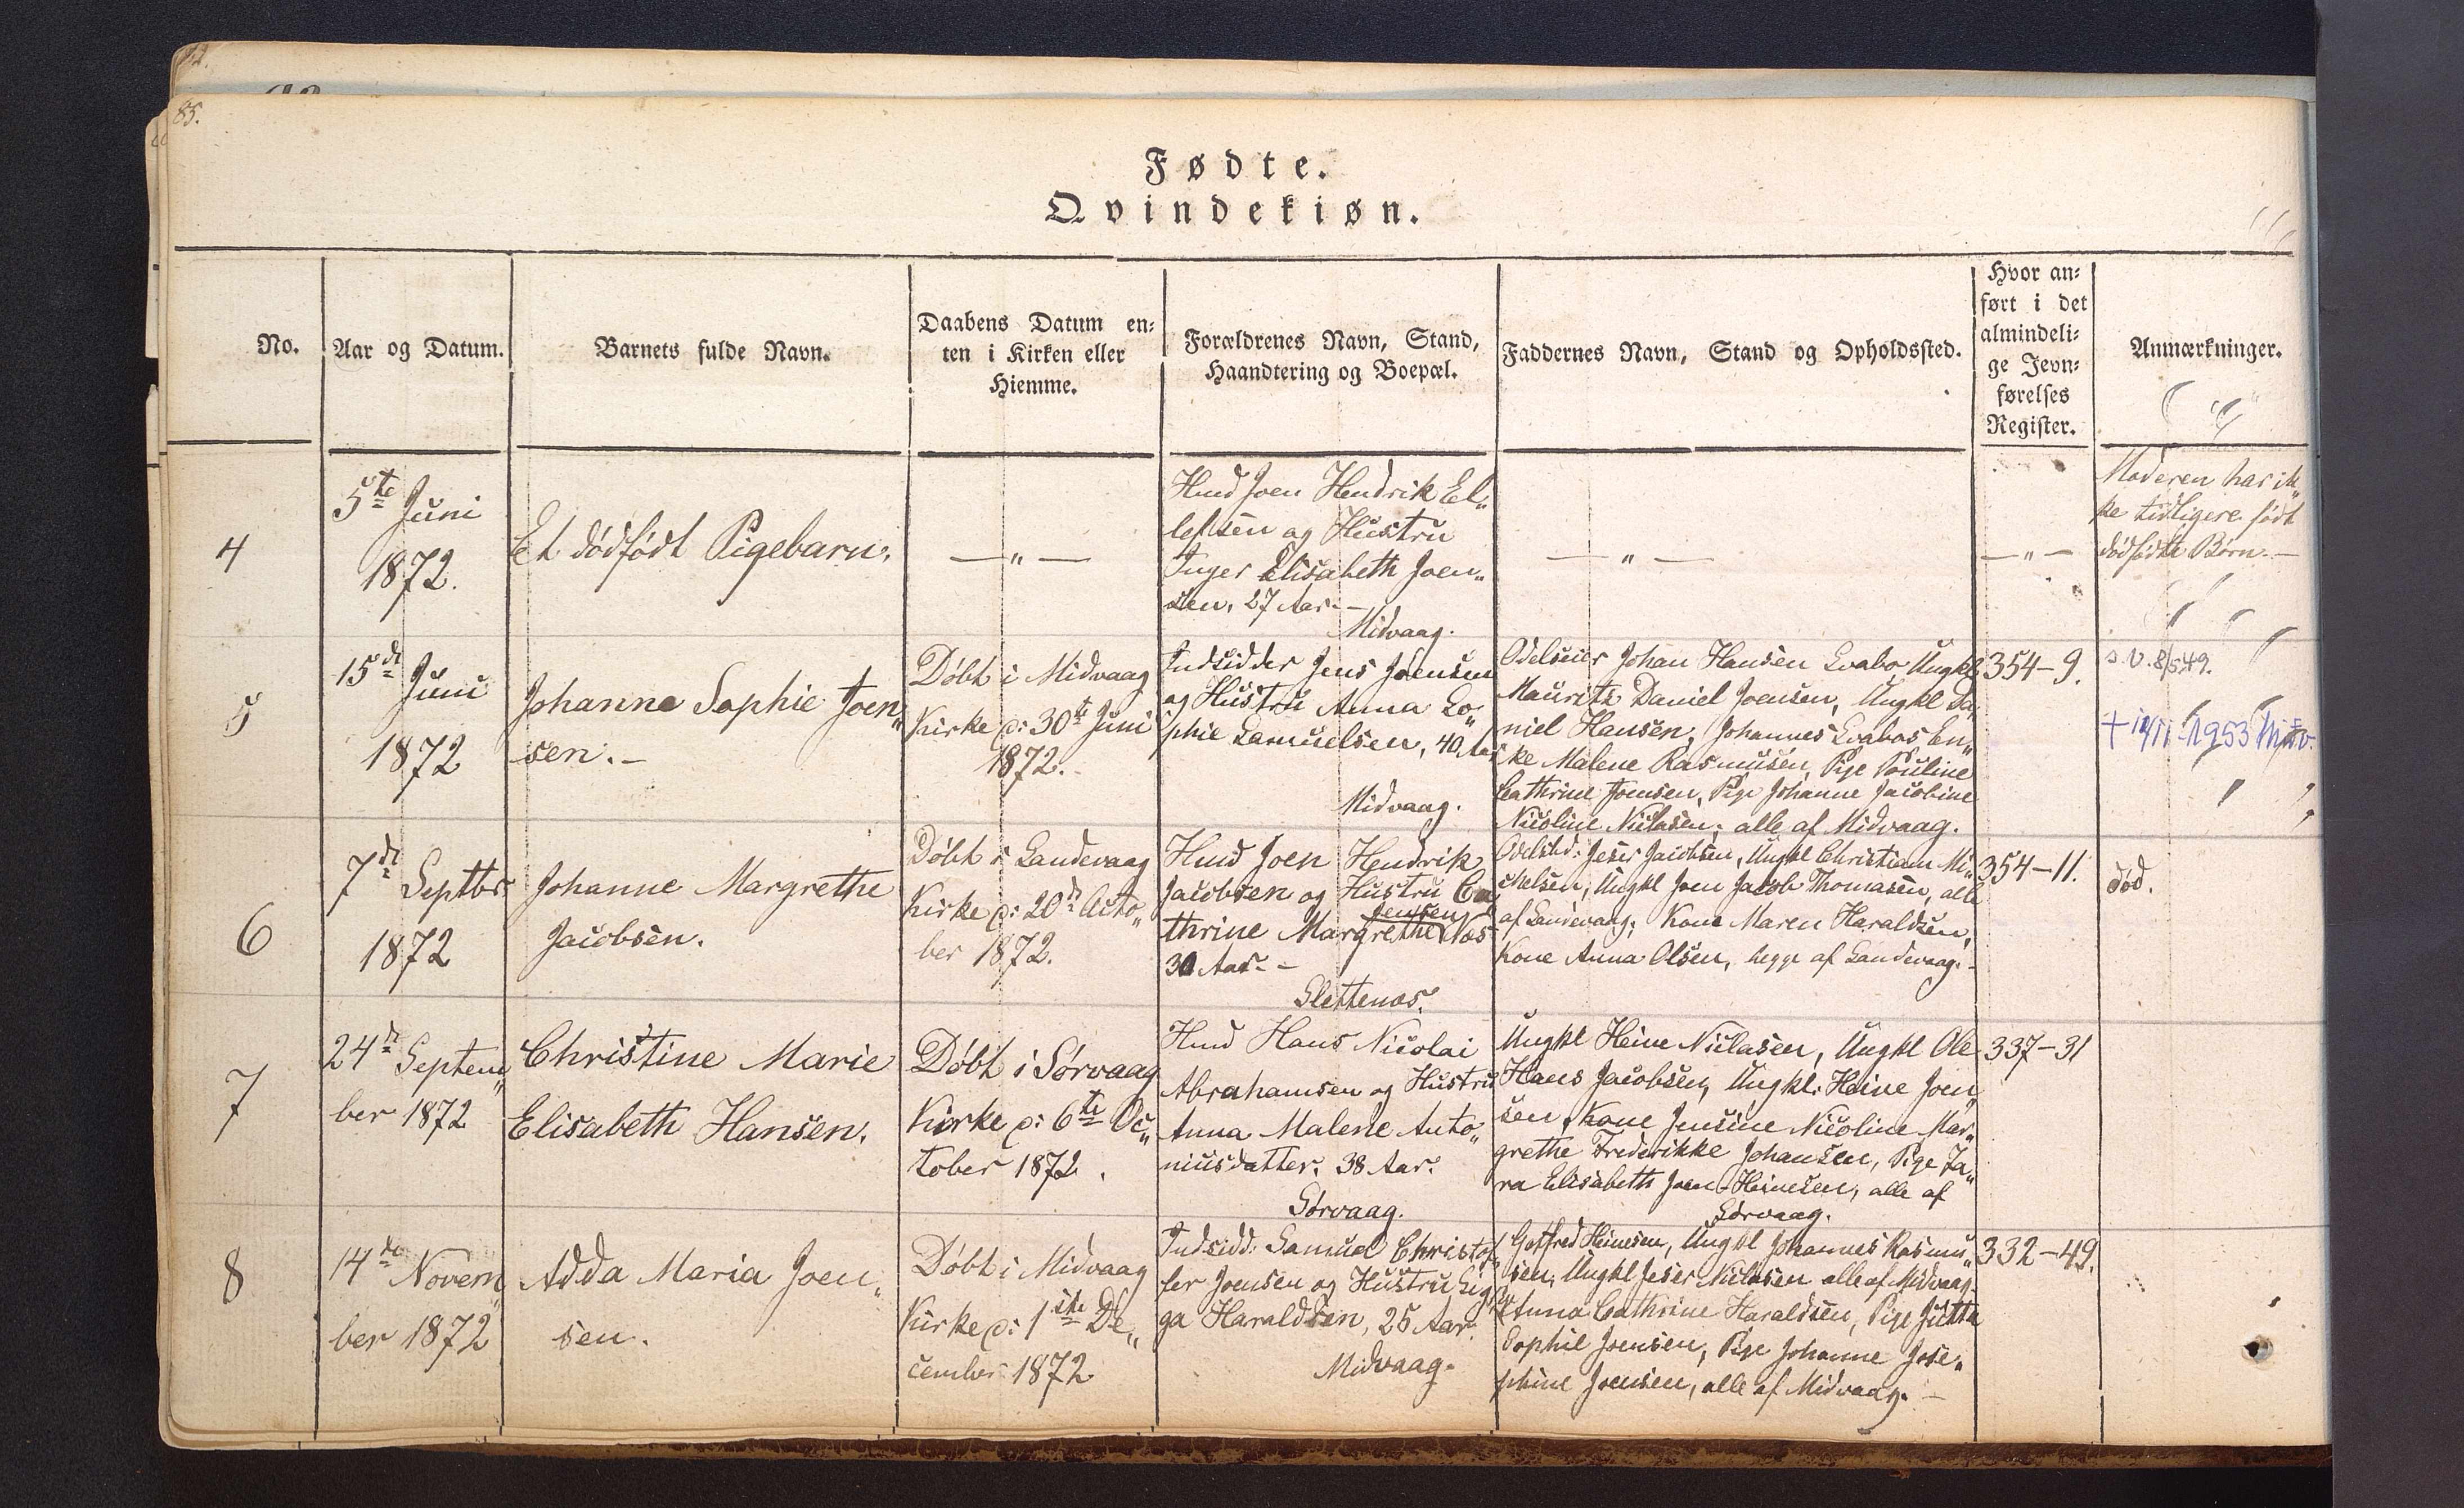 85.
Fødte.
Qvindekiøn.
No.
Aar og Datum.
Barnets fulde Navn.
Daabens Datum en-
ten i Kirken eller
Hiemme.
Forældrenes Navn, Stand,
Haandtering og Boepæl.
Faddernes Navn, Stand og Opholdssted.
Hvor an-
ført i det
almindeli-
ge Jevn-
førelses
Register.
Anmærkninger.
4
5te Juni
1872.
Et dødfødt Pigebarn.
— „ —
Hmd Joen Hendrik El„
lefsen og Hustru
Inger Elisabeth Joen„
sen, 27 Aar. —
Midvaag.
— „ —
— „ —
Moderen har ik„
ke tidligere født
dødfødte Børn. —
5
15de Juni
1872
Johanne Sophie Joen„
sen. —
Døbt i Midvaag
Kirke d: 30te Juni
1872.
Indsidder Jens Joensen
og Hustru Anna So„
phie Samuelsen, 40 Aar
Midvaag.
Odelseier Johan Hansen Svabo, Ungkl
Maurits Daniel Joensen, Ungkl Da„
niel Hansen, Johannes Svabos En„
ke Malene Rasmussen, Pige Pouline
Cathrine Joensen, Pige Johanne Jacobine
Nicoline Niclasen, alle af Midvaag.
354-9.
s.v. 8/5 49.
1953 Midv.
6
7de Septbr
1872
Johanne Margrethe
Jacobsen.
Døbt i Sandevaag
Kirke d: 20de Octo„
ber 1872.
Hmd Joen Hendrik
Jacobsen og Hustru Ca„
Jensen
thrine Margrethe Næs
30 Aar. —
Slettenæs.
Odelsbd: Jeser Jacobsen, Ungkl Christian Mi„
chelsen, Ungkl Joen Jacob Thomasen, alle
af Sandevaag, Kone Maren Haraldsen,
Kone Anna Olsen, begge af Sandevaag. —
354-11.
død.
7
24de Septem„
ber 1872
Christine Marie
Elisabeth Hansen.
Døbt i Sørvaag
Kirke d: 6te Oc„
tober 1872.
Hmd Hans Nicolai
Abrahamsen og Hustru
Anna Malene Anto„
niusdatter, 38 Aar.
Sørvaag.
Ungkl Heine Niclasen, Ungkl Ole
Hans Jacobsen, Ungkl. Heine Joen„
sen, Kone Jensine Nicoline Mar„
grethe Frederikke Johansen, Pige Ja„
ra Elisabeth Joen-Heinesen, alle af
Sørvaag.
337-31
8
14de Novem„
ber 1872
Adda Maria Joen„
sen.
Døbt i Midvaag
Kirke d: 1ste De„
cember 1872
Indsidd: Samual Christof„
fer Joensen og Hustru Sig„
ga Haraldsen, 25 Aar.
Midvaag.
Gotfred Heinesen, Ungkl Johannes Rasmu„
sen, Ungkl Jeser Niclasen alle af Midvaag.
Anna Cathrine Haraldsen, Pige Jutta
Sophie Joensen, Pige Johanne Jose„
phine Joensen, alle af Midvaag. —
332-49.